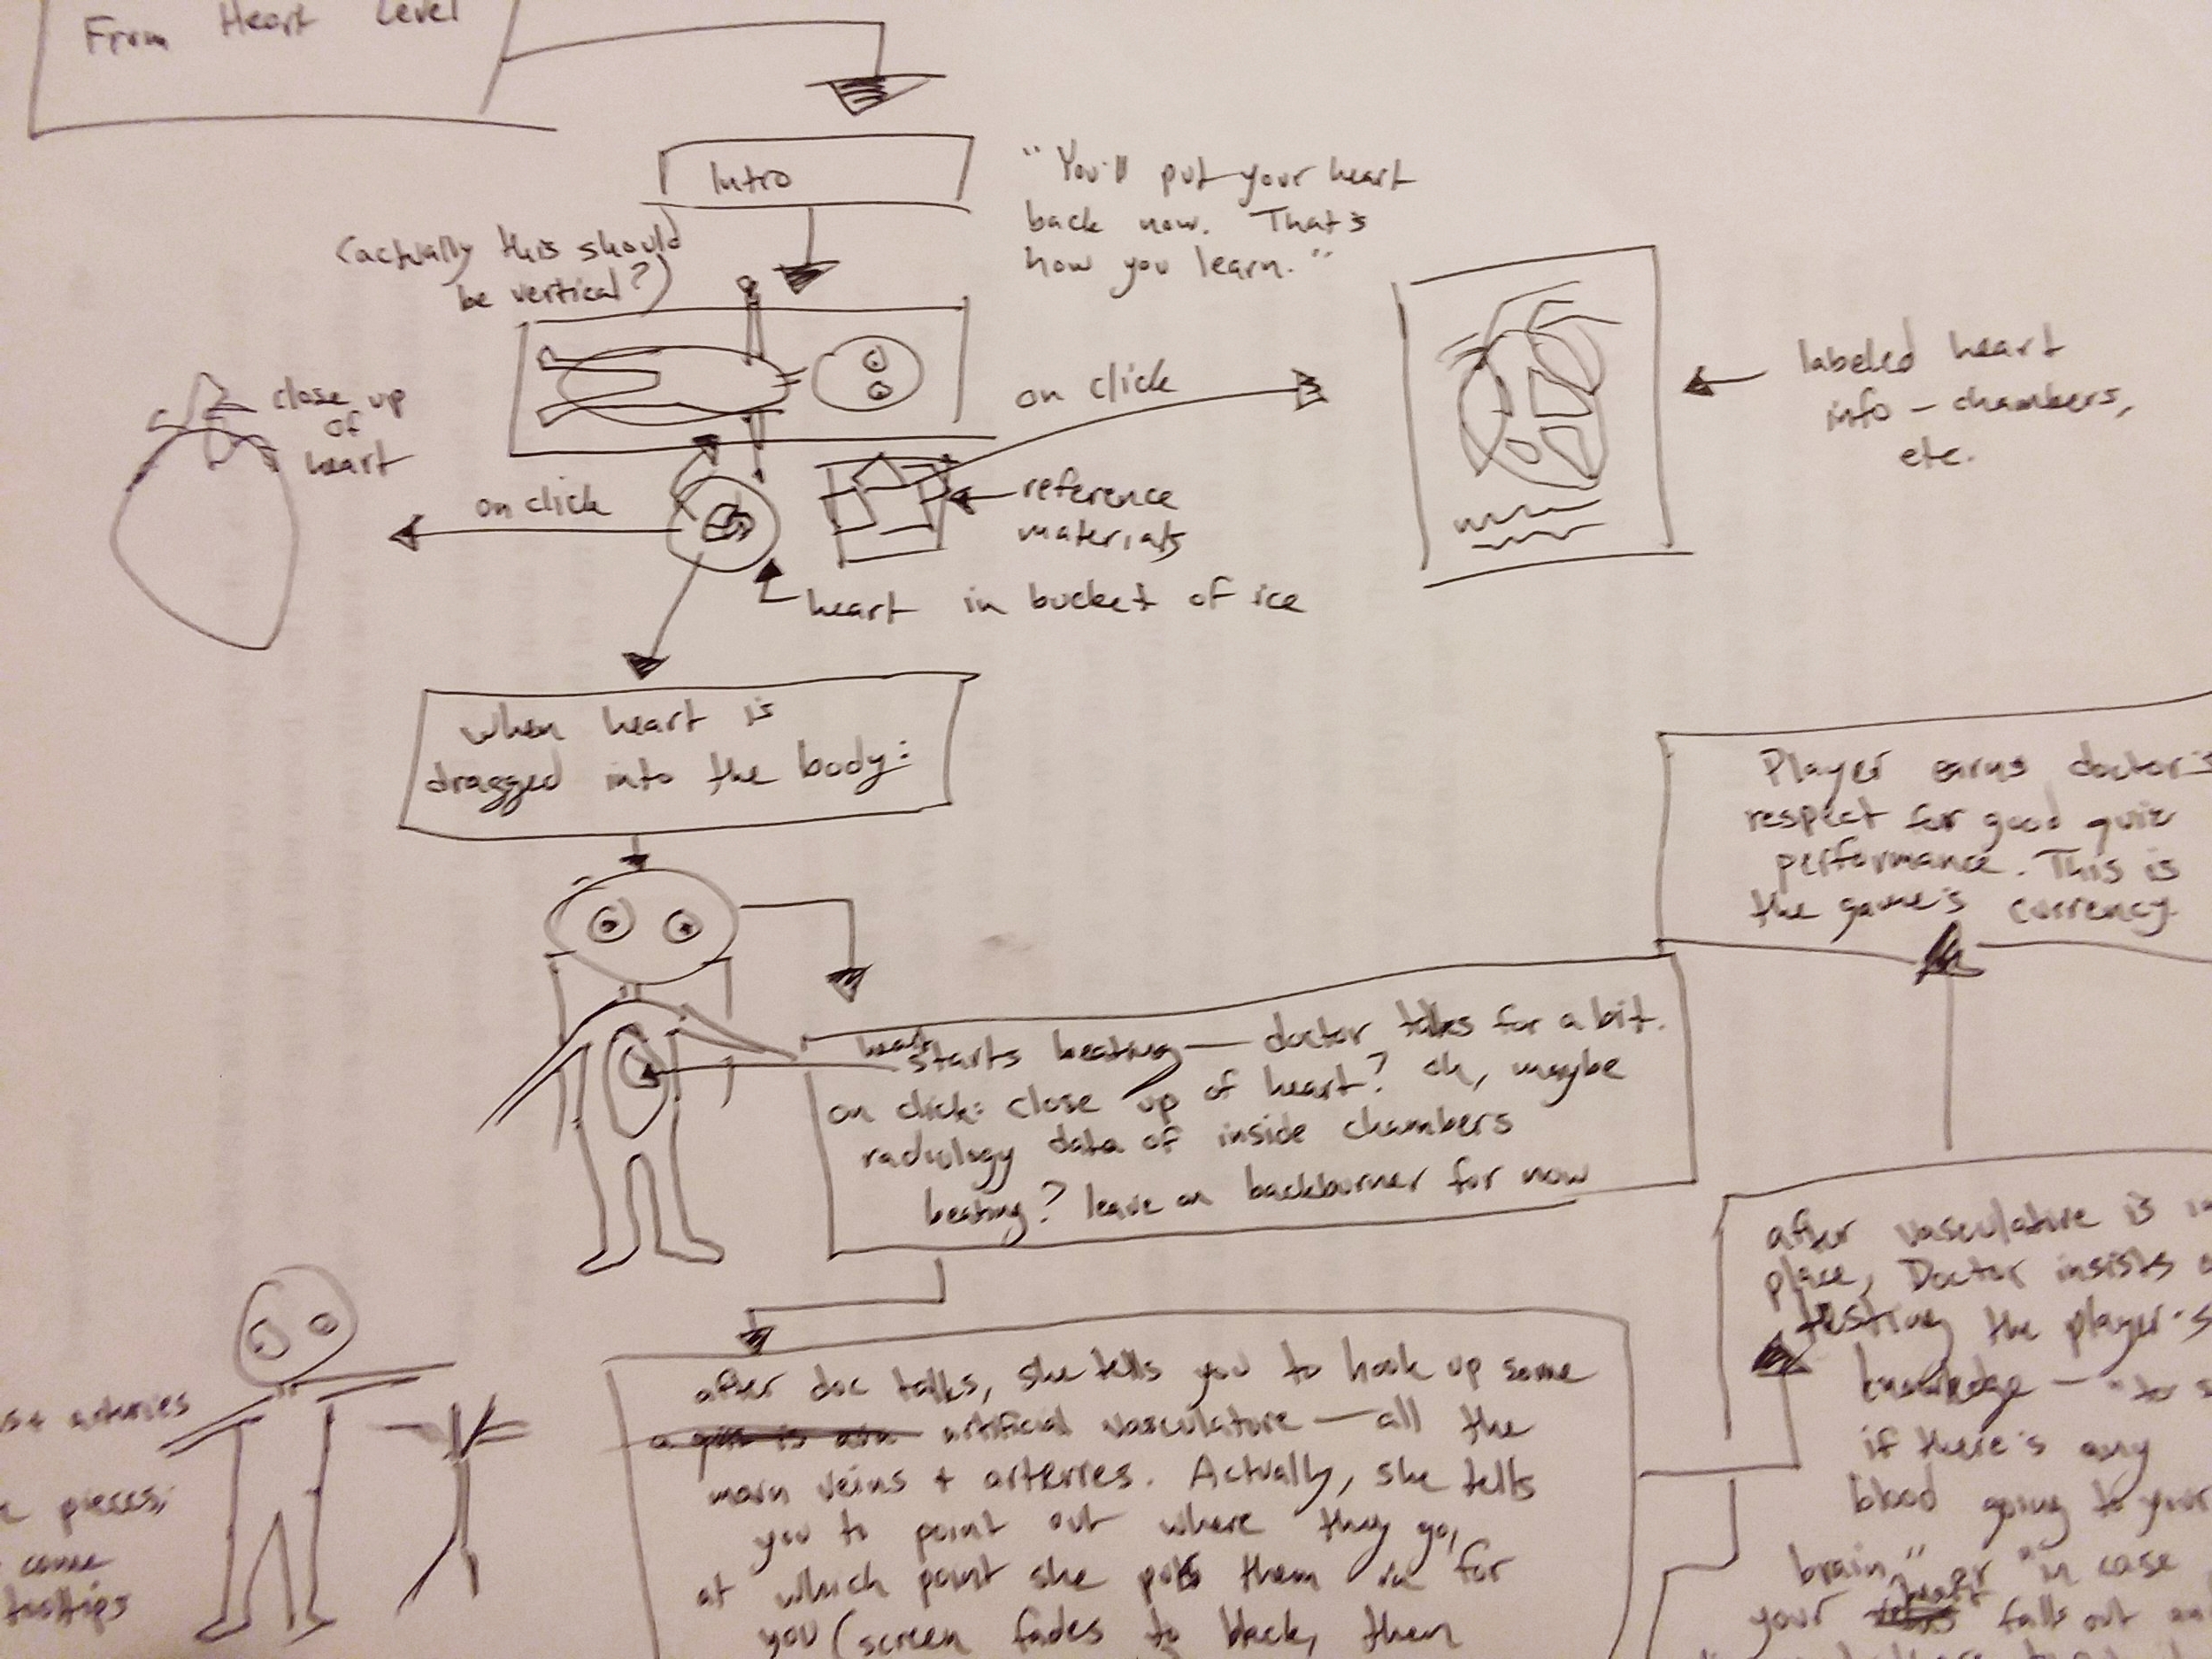 From Heart Level
Intro
"You'll put your heart
back now. That's
how you learn."
(actually this should
be vertical?)
on click
labeled heart
info - chambers,
etc.
close up
of
heart
on click
reference
materials
heart in bucket of ice
when heart is
dragged into the body:
Player earns doctor's
respect for good quiz
performance. This is
the game's currency
heart starts beating — doctor talks for a bit.
on click: close up of heart? Oh, maybe
radiology data of inside chambers
beating? leave on backburner for now
after vasculature is
place, Doctor insists
testing the player's
knowledge — "to
if there's any
blood going to your
brain," or "in case
your heart falls out
after doc talks, she tells you to hook up some
artificial vasculature — all the
main veins + arterries. Actually, she tells
you to point out where they go,
at which point she puts them in for
you (screen fades to black, then
arteries
pieces;
come
tooltips